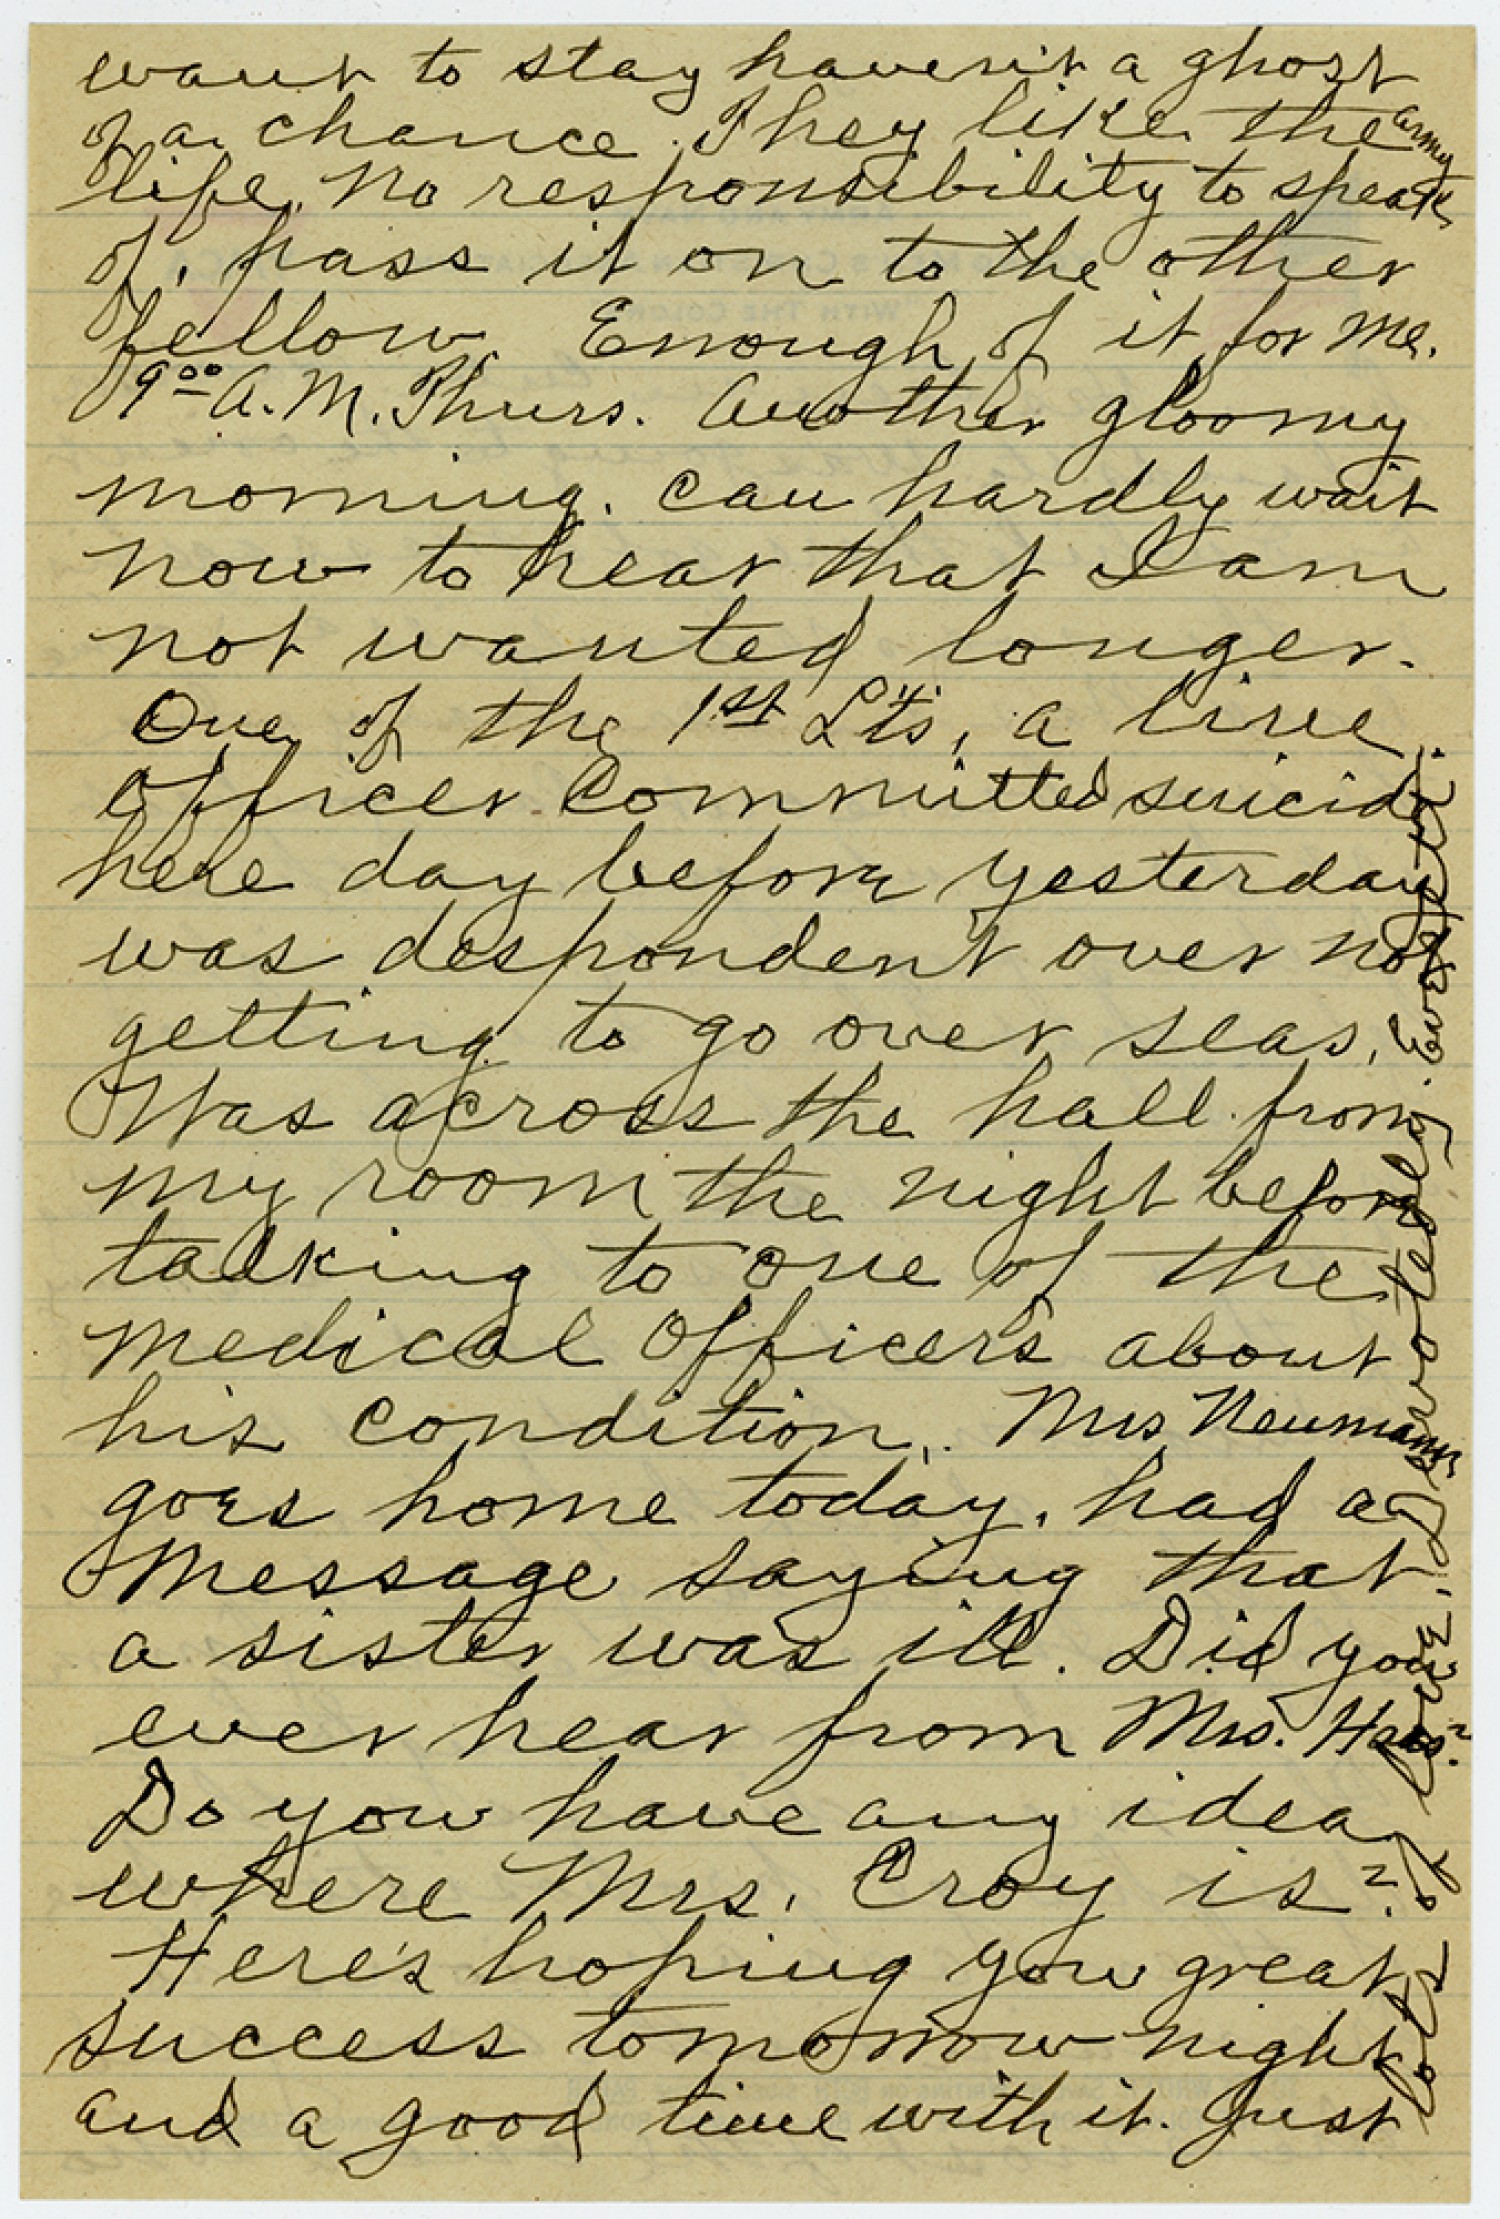 want to stay haven't a ghost
of a chance. They like the army
life. No responsibility to speak
of, pass it on to the other
fellow. Enough of it for me.
9⁰⁰ A.M. Thurs. Another gloomy
morning. Can hardly wait
now to hear that I am
not wanted longer.
One of the 1st Lt's, a line
officer committed suicide
here day before yesterday
was despondent over not
getting to go over seas.
Was across the hall from
my room the night before
talking to one of the
medical officers about
his condition. Mrs Neumann
goes home today. had a
message saying that
a sister was ill. Did you
ever hear from Mrs. Haas?
Do you have any idea
where Mrs. Croy is?
Here's hoping you great
success tomorrow night
and a good time with it. Just
lots of love. Devotedly. Everett.